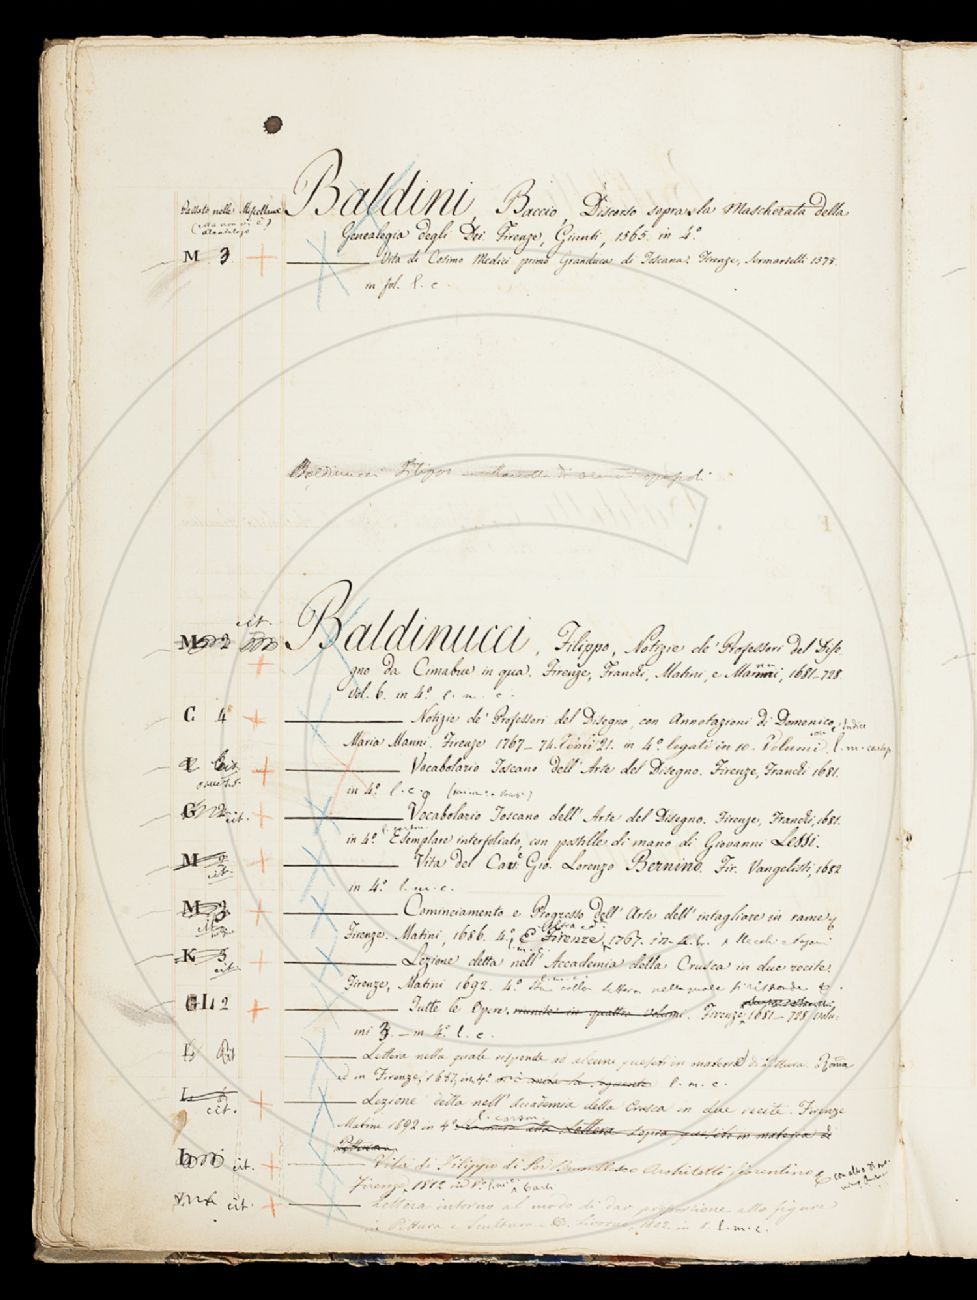 Passato nelle Miscellanee
Baldini, Baccio, Discorso sopra la Mascherata della
Genealogia degli Dei. Firenze, Giunti, 1565. in 4.º
M 3 Vita di Cosimo Medici primo Granduca di Toscana. Firenze, Sermartelli 1578.
in fol. l. c
Baldinucci Filippo Raccolta di alcuni opuscoli
cit.
M 2 Baldinucci, Filippo, Notizie de' Professori del Dise-
gno da Cimabue in qua. Firenze, Franchi, Matini, e Manni, 1681-728.
vol. 6. in 4.º l. m. c.
C 4 Notizie de' Professori del Disegno, con Annotazioni di Domenico
Maria Manni. Firenze 1767-74. Tomi 21. in 4.º legati in 10. Volumi. l. m. c.
Vocabolario Toscano dell' Arte del Disegno. Firenze, Franchi 1681.
in 4.º l. c.
G 2 cit. Vocabolario Toscano dell' Arte del Disegno. Firenze, Franchi, 1681.
in 4.º Esemplare interfoliato, con postille di mano di Giovanni Lessi.
M cit. Vita del Cav.º Gio. Lorenzo Bernino. Fir. Vangelisti, 1682
in 4.º l. m. c.
M Cominciamento e Progresso dell' Arte dell' intagliare in rame
Firenze. Matini, 1686. 4.º E Firenze, 1767. in
K 5 cit. Lezione detta nell' Accademia della Crusca in due recite.
Firenze, Matini 1692. 4.º colla lettera nella quale si risponde
GL 2 Tutte le Opere, riunite in quattro volumi. Firenze 1681-728 volu-
mi 3. in 4.º l. c.
L Lettera nella quale risponde ad alcuni quesiti in materie di Pittura. Roma
in Firenze, 1687, in 4.º l. m. c.
L cit. Lezione detta nell' Accademia della Crusca in due recite. Firenze
Matini 1692 in 4.º alla Lettera sopra quesiti in materia di
Pittura
cit. Vita di Filippo di Ser Brunellesco Architetto fiorentino
Firenze, 1812 in 8.º
cit. Lettera intorno al modo di dar proporzione alle figure
in Pittura e Scultura &. Livorno, 1802. in 8. l. m. c.